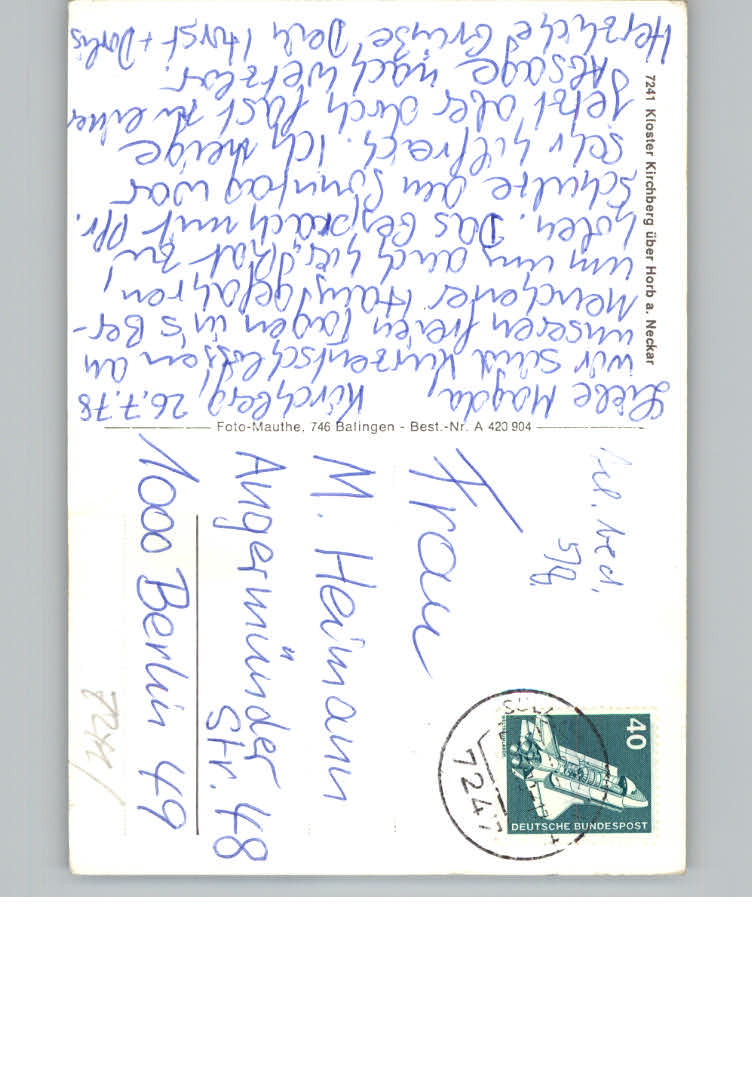 Kirchberg, 26.7.78
Liebe Magda,
wir sind kurzentschlossen an
unseren freien Tagen in's Ber-
neuchener Haus gefahren,
um uns auch hier Rat zu
holen. Das Gespräch mit Pfr.
Schulte am Sonntag war
sehr hilfreich. Ich neige
jetzt aber doch fast zu einer
Absage nach Wetzlar.
Herzliche Grüße, Dein Horst + Doris
7241 Kloster Kirchberg über Horb a. Neckar
Foto-Mauthe, 746 Balingen - Best.-Nr. A 420 904
Frau
M. Heimann
Angermünder
Str. 48
1000 Berlin 49
5/8.
40
DEUTSCHE BUNDESPOST
7247
7241